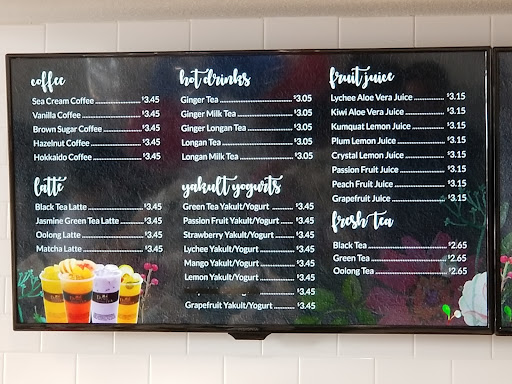 coffee
Sea Cream Coffee $3.45
Vanilla Coffee $3.45
Brown Sugar Coffee $3.45
Hazelnut Coffee $3.45
Hokkaido Coffee $3.45
latte
Black Tea Latte $3.45
Jasmine Green Tea Latte $3.45
Oolong Latte $3.45
Matcha Latte $3.45
hot drinks
Ginger Tea $3.05
Ginger Milk Tea $3.05
Ginger Longan Tea $3.05
Longan Tea $3.05
Longan Milk Tea $3.05
yakult yogurts
Green Tea Yakult/Yogurt $3.45
Passion Fruit Yakult/Yogurt $3.45
Strawberry Yakult/Yogurt $3.45
Lychee Yakult/Yogurt $3.45
Mango Yakult/Yogurt $3.45
Lemon Yakult/Yogurt $3.45
$3.45
Grapefruit Yakult/Yogurt $3.45
fruit juice
Lychee Aloe Vera Juice $3.15
Kiwi Aloe Vera Juice $3.15
Kumquat Lemon Juice $3.15
Plum Lemon Juice $3.15
Crystal Lemon Juice $3.15
Passion Fruit Juice $3.15
Peach Fruit Juice $3.15
Grapefruit Juice $3.15
fresh tea
Black Tea $2.65
Green Tea $2.65
Oolong Tea $2.65